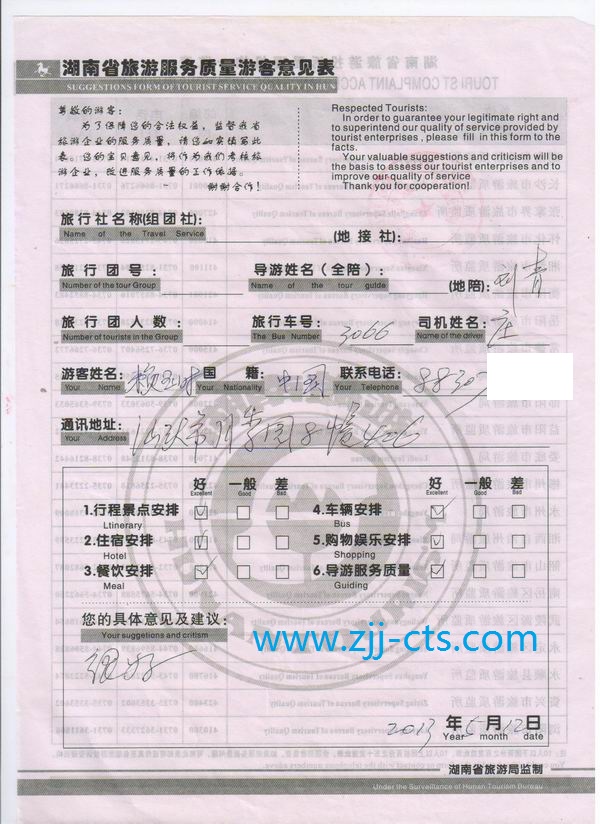 湖南省旅游服务质量游客意见表
SUGGESTIONS FORM OF TOURIST SERVICE QUALITY IN HUN
尊敬的游客：
为了保障您的合法权益，监督我省
旅游企业的服务质量，请您如实填写此
表。您的宝贵意见，将作为我们考核旅
游企业，改进服务质量的工作依据。
谢谢合作！
Respected Tourists:
In order to guarantee your legitimate right and
to superintend our quality of service provided by
tourist enterprises , please fill in this form to the
facts.
Your valuable suggestions and criticism will be
the basis to assess our tourist enterprises and to
improve our quality of service
Thank you for cooperation!
旅行社名称(组团社):
Name of the Travel Service
(地接社):
旅行团号:
Number of the tour Group
导游姓名(全陪):
Name of the tour guide
(地陪): 刘青
旅行团人数:
Number of tourists in the Group
旅行车号: 3066
The Bus Number
司机姓名: 庄
Name of the driver
游客姓名:
Your Name
国籍: 中国
Your Nationality
联系电话: 88307
Your Telephone
通讯地址:
Your Address
好 一般 差 好 一般 差
Excellent Good Bad Excellent Good Bad
1.行程景点安排
Ltinerary
4.车辆安排
Bus
2.住宿安排
Hotel
5.购物娱乐安排
Shopping
3.餐饮安排
Meal
6.导游服务质量
Guiding
您的具体意见及建议:
Your suggetions and critism
www.zjj-cts.com
很好
2013 年 5 月 12 日
Year month date
湖南省旅游局监制
Under the Surveillance of Hunan Tourism Bureau